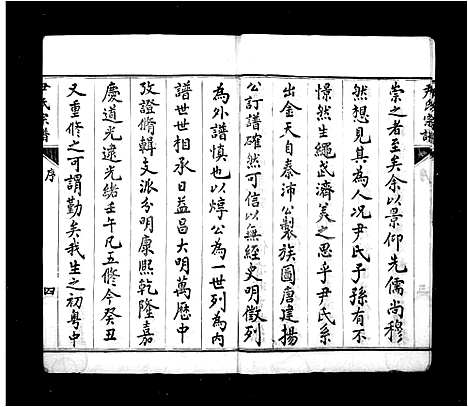 崇之者至矣余以景仰先儒尚穆
然想見其為人况尹氏子孫有不
憬然生繩武濟美之思乎尹氏系
出金天自秦沛公製族圖唐建揚
公訂譜確然可信以無經史明徵列
為外譜慎也以焞公為一世列為内
譜世世相承日益昌大明萬歷中
攷證脩輯支派分明康熙乾隆嘉
慶道光逮光緒壬午凡五修今癸丑
又重修之可謂勤矣我生之初粤中
尹氏宗譜
序
四